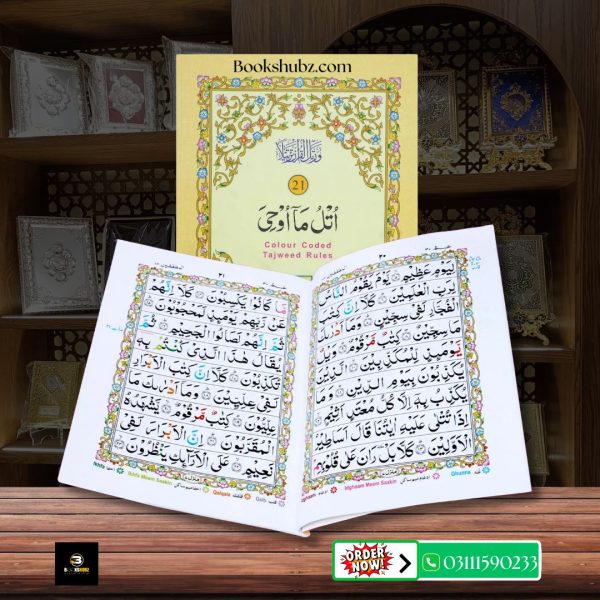 Bookshubz.com
وَرَتِّلِ الْقُرْاٰنَ تَرْتِيْلًا
21
اُتْلُ مَاۤ اُوْحِیَ
Colour Coded
Tajweed Rules
٢٠
لِيَوْمٍ عَظِيْمٍ يَّوْمَ يَقُوْمُ النَّاسُ
لِرَبِّ الْعٰلَمِيْنَ كَلَّاۤ اِنَّ كِتٰبَ
الْفُجَّارِ لَفِيْ سِجِّيْنٍ وَمَاۤ اَدْرٰىكَ
مَا سِجِّيْنٌ كِتٰبٌ مَّرْقُوْمٌ وَيْلٌ
يَّوْمَئِذٍ لِّلْمُكَذِّبِيْنَ الَّذِيْنَ
يُكَذِّبُوْنَ بِيَوْمِ الدِّيْنِ وَمَا
يُكَذِّبُ بِهٖۤ اِلَّا كُلُّ مُعْتَدٍ اَثِيْمٍ
اِذَا تُتْلٰى عَلَيْهِ اٰيٰتُنَا قَالَ اَسَاطِيْرُ
الْاَوَّلِيْنَ كَلَّا بَلْ رَانَ عَلٰى قُلُوْبِهِمْ
Idghaam Meem Saakin Ghunna
٢١
مَّا كَانُوْا يَكْسِبُوْنَ كَلَّاۤ اِنَّهُمْ
عَنْ رَّبِّهِمْ يَوْمَئِذٍ لَّمَحْجُوْبُوْنَ
ثُمَّ اِنَّهُمْ لَصَالُوا الْجَحِيْمِ ثُمَّ
يُقَالُ هٰذَا الَّذِيْ كُنْتُمْ بِهٖ
تُكَذِّبُوْنَ كَلَّاۤ اِنَّ كِتٰبَ الْاَبْرَارِ
لَفِيْ عِلِّيِّيْنَ وَمَاۤ اَدْرٰىكَ مَا
عِلِّيُّوْنَ كِتٰبٌ مَّرْقُوْمٌ يَّشْهَدُهُ
الْمُقَرَّبُوْنَ اِنَّ الْاَبْرَارَ لَفِيْ
نَعِيْمٍ عَلَى الْاَرَآئِكِ يَنْظُرُوْنَ
Ikhfa Ikhfa Meem Saakin Qalqala Qalb
ORDER NOW!
03111590233